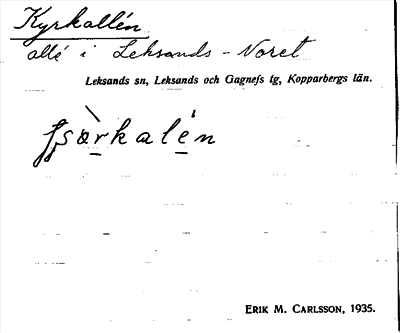 Kyrkallén
allé i Leksands-Noret
Leksands sn, Leksands och Gagnefs tg, Kopparbergs län.
ERIK M. CARLSSON, 1935.